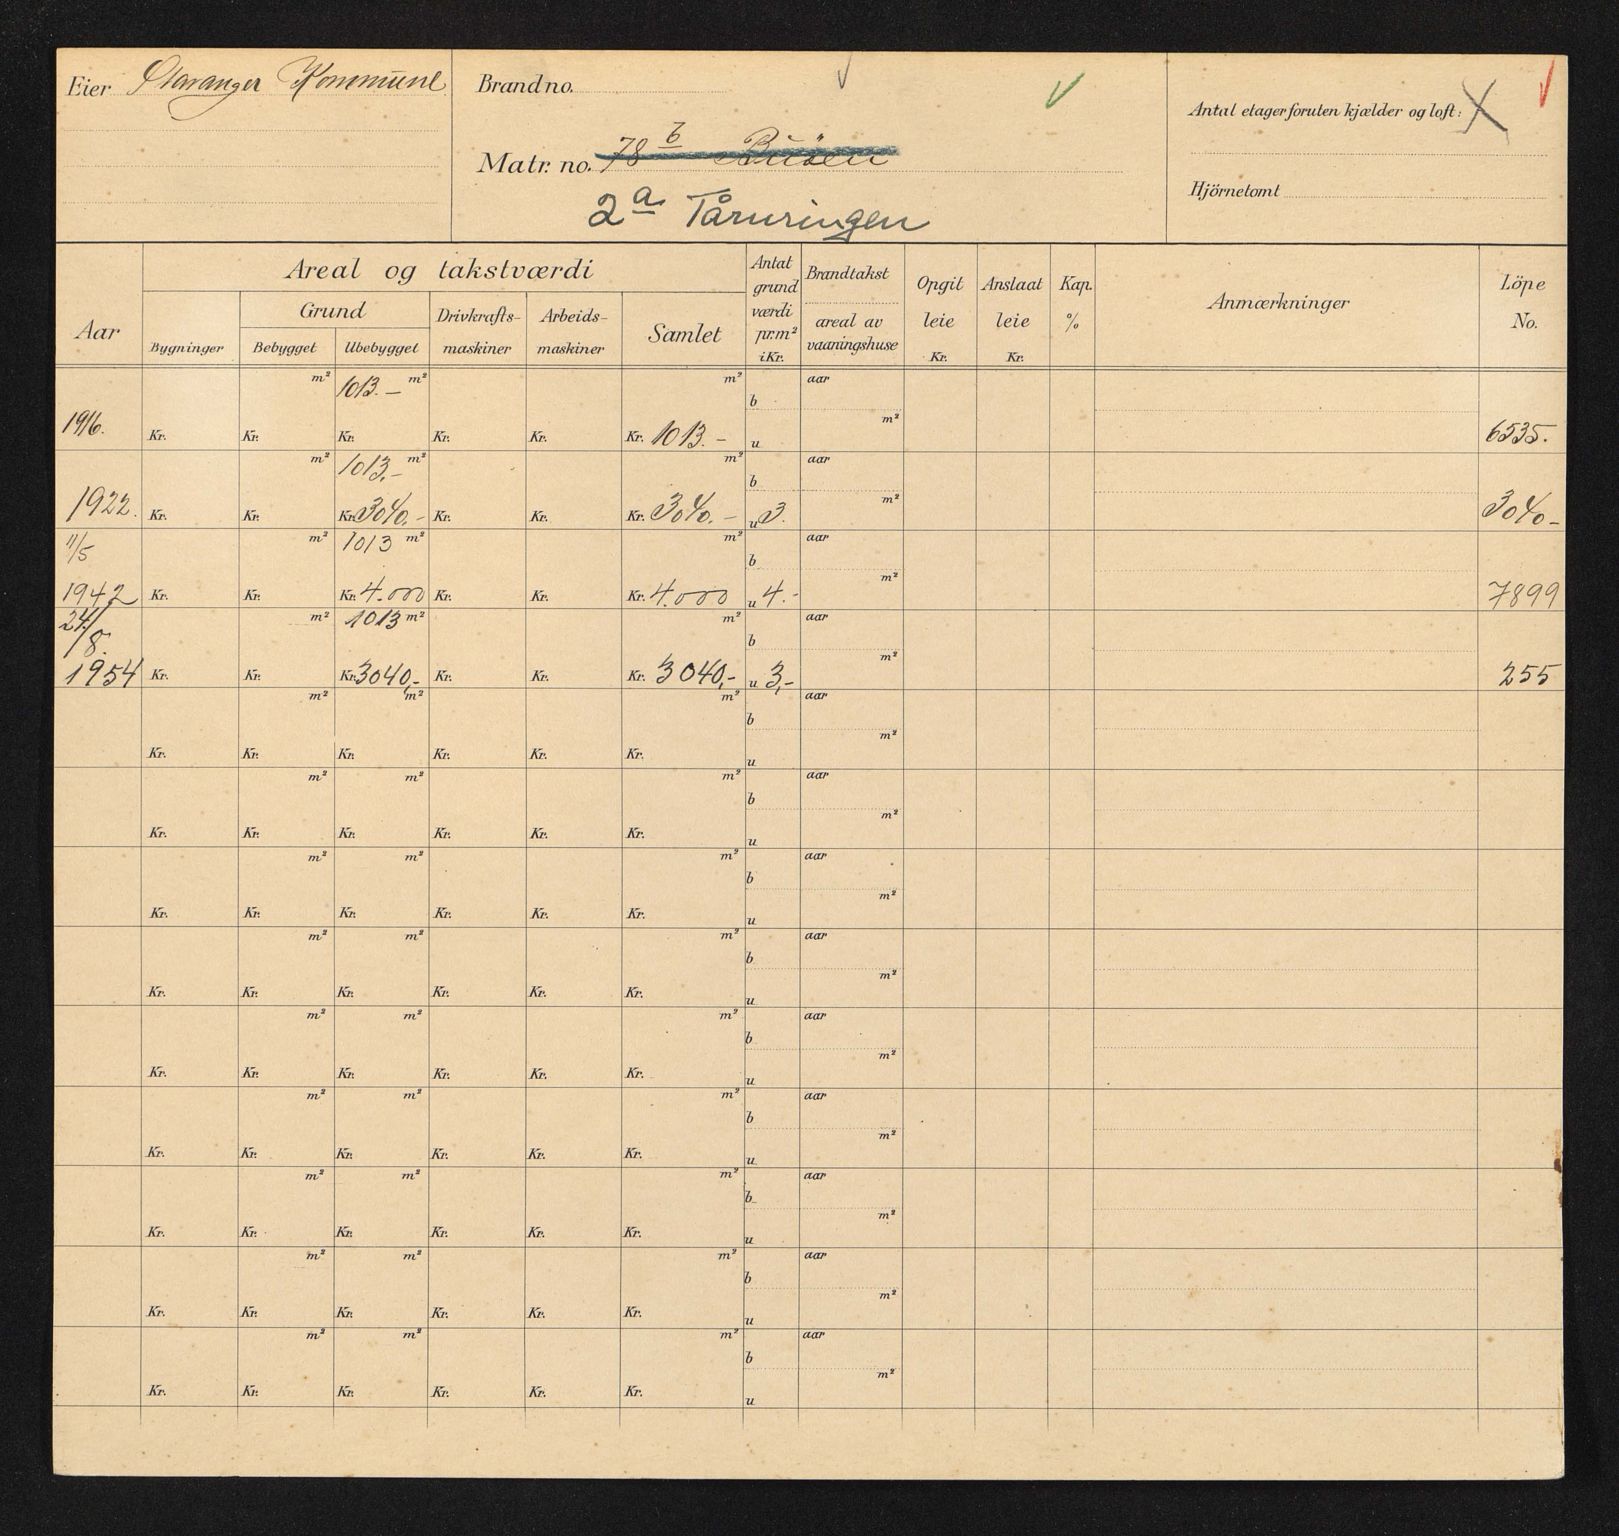 Eier Stavanger Kommune
Brandno.
Matr. no. 78 b Buöen
2a Tårnringen
Antal etager foruten kjælder og loft: X
Hjörnetomt
Aar
Areal og takstværdi
Bygninger
Grund
Bebygget Ubebygget
Drivkrafts-
maskiner
Arbeids-
maskiner
Samlet
Antat
grund
værdi
pr.m²
i Kr.
Brandtakst
areal av
vaaningshuse
Opgit
leie
Kr.
Anslaat
leie
Kr.
Kap.
%
Anmærkninger
Löpe
No.
m² 1013.- m² m² b aar
1916. Kr. Kr. Kr. Kr. Kr. Kr. 1013.- u m² 6535.
m² 1013,- m² m² b aar
1922. Kr. Kr. Kr. 3040.- Kr. Kr. Kr. 3040.- u 3. m² 3040-
11/5 m² 1013 m² m² b aar
1942 Kr. Kr. Kr. 4.000 Kr. Kr. Kr. 4.000 u 4.- m² 7899
24/8. m² 1013 m² m² b aar
1954 Kr. Kr. Kr. 3040,- Kr. Kr. Kr. 3040,- u 3,- m² 255
m² m² m² b aar
Kr. Kr. Kr. Kr. Kr. Kr. u m²
m² m² m² b aar
Kr. Kr. Kr. Kr. Kr. Kr. u m²
m² m² m² b aar
Kr. Kr. Kr. Kr. Kr. Kr. u m²
m² m² m² b aar
Kr. Kr. Kr. Kr. Kr. Kr. u m²
m² m² m² b aar
Kr. Kr. Kr. Kr. Kr. Kr. u m²
m² m² m² b aar
Kr. Kr. Kr. Kr. Kr. Kr. u m²
m² m² m² b aar
Kr. Kr. Kr. Kr. Kr. Kr. u m²
m² m² m² b aar
Kr. Kr. Kr. Kr. Kr. Kr. u m²
m² m² m² b aar
Kr. Kr. Kr. Kr. Kr. Kr. u m²